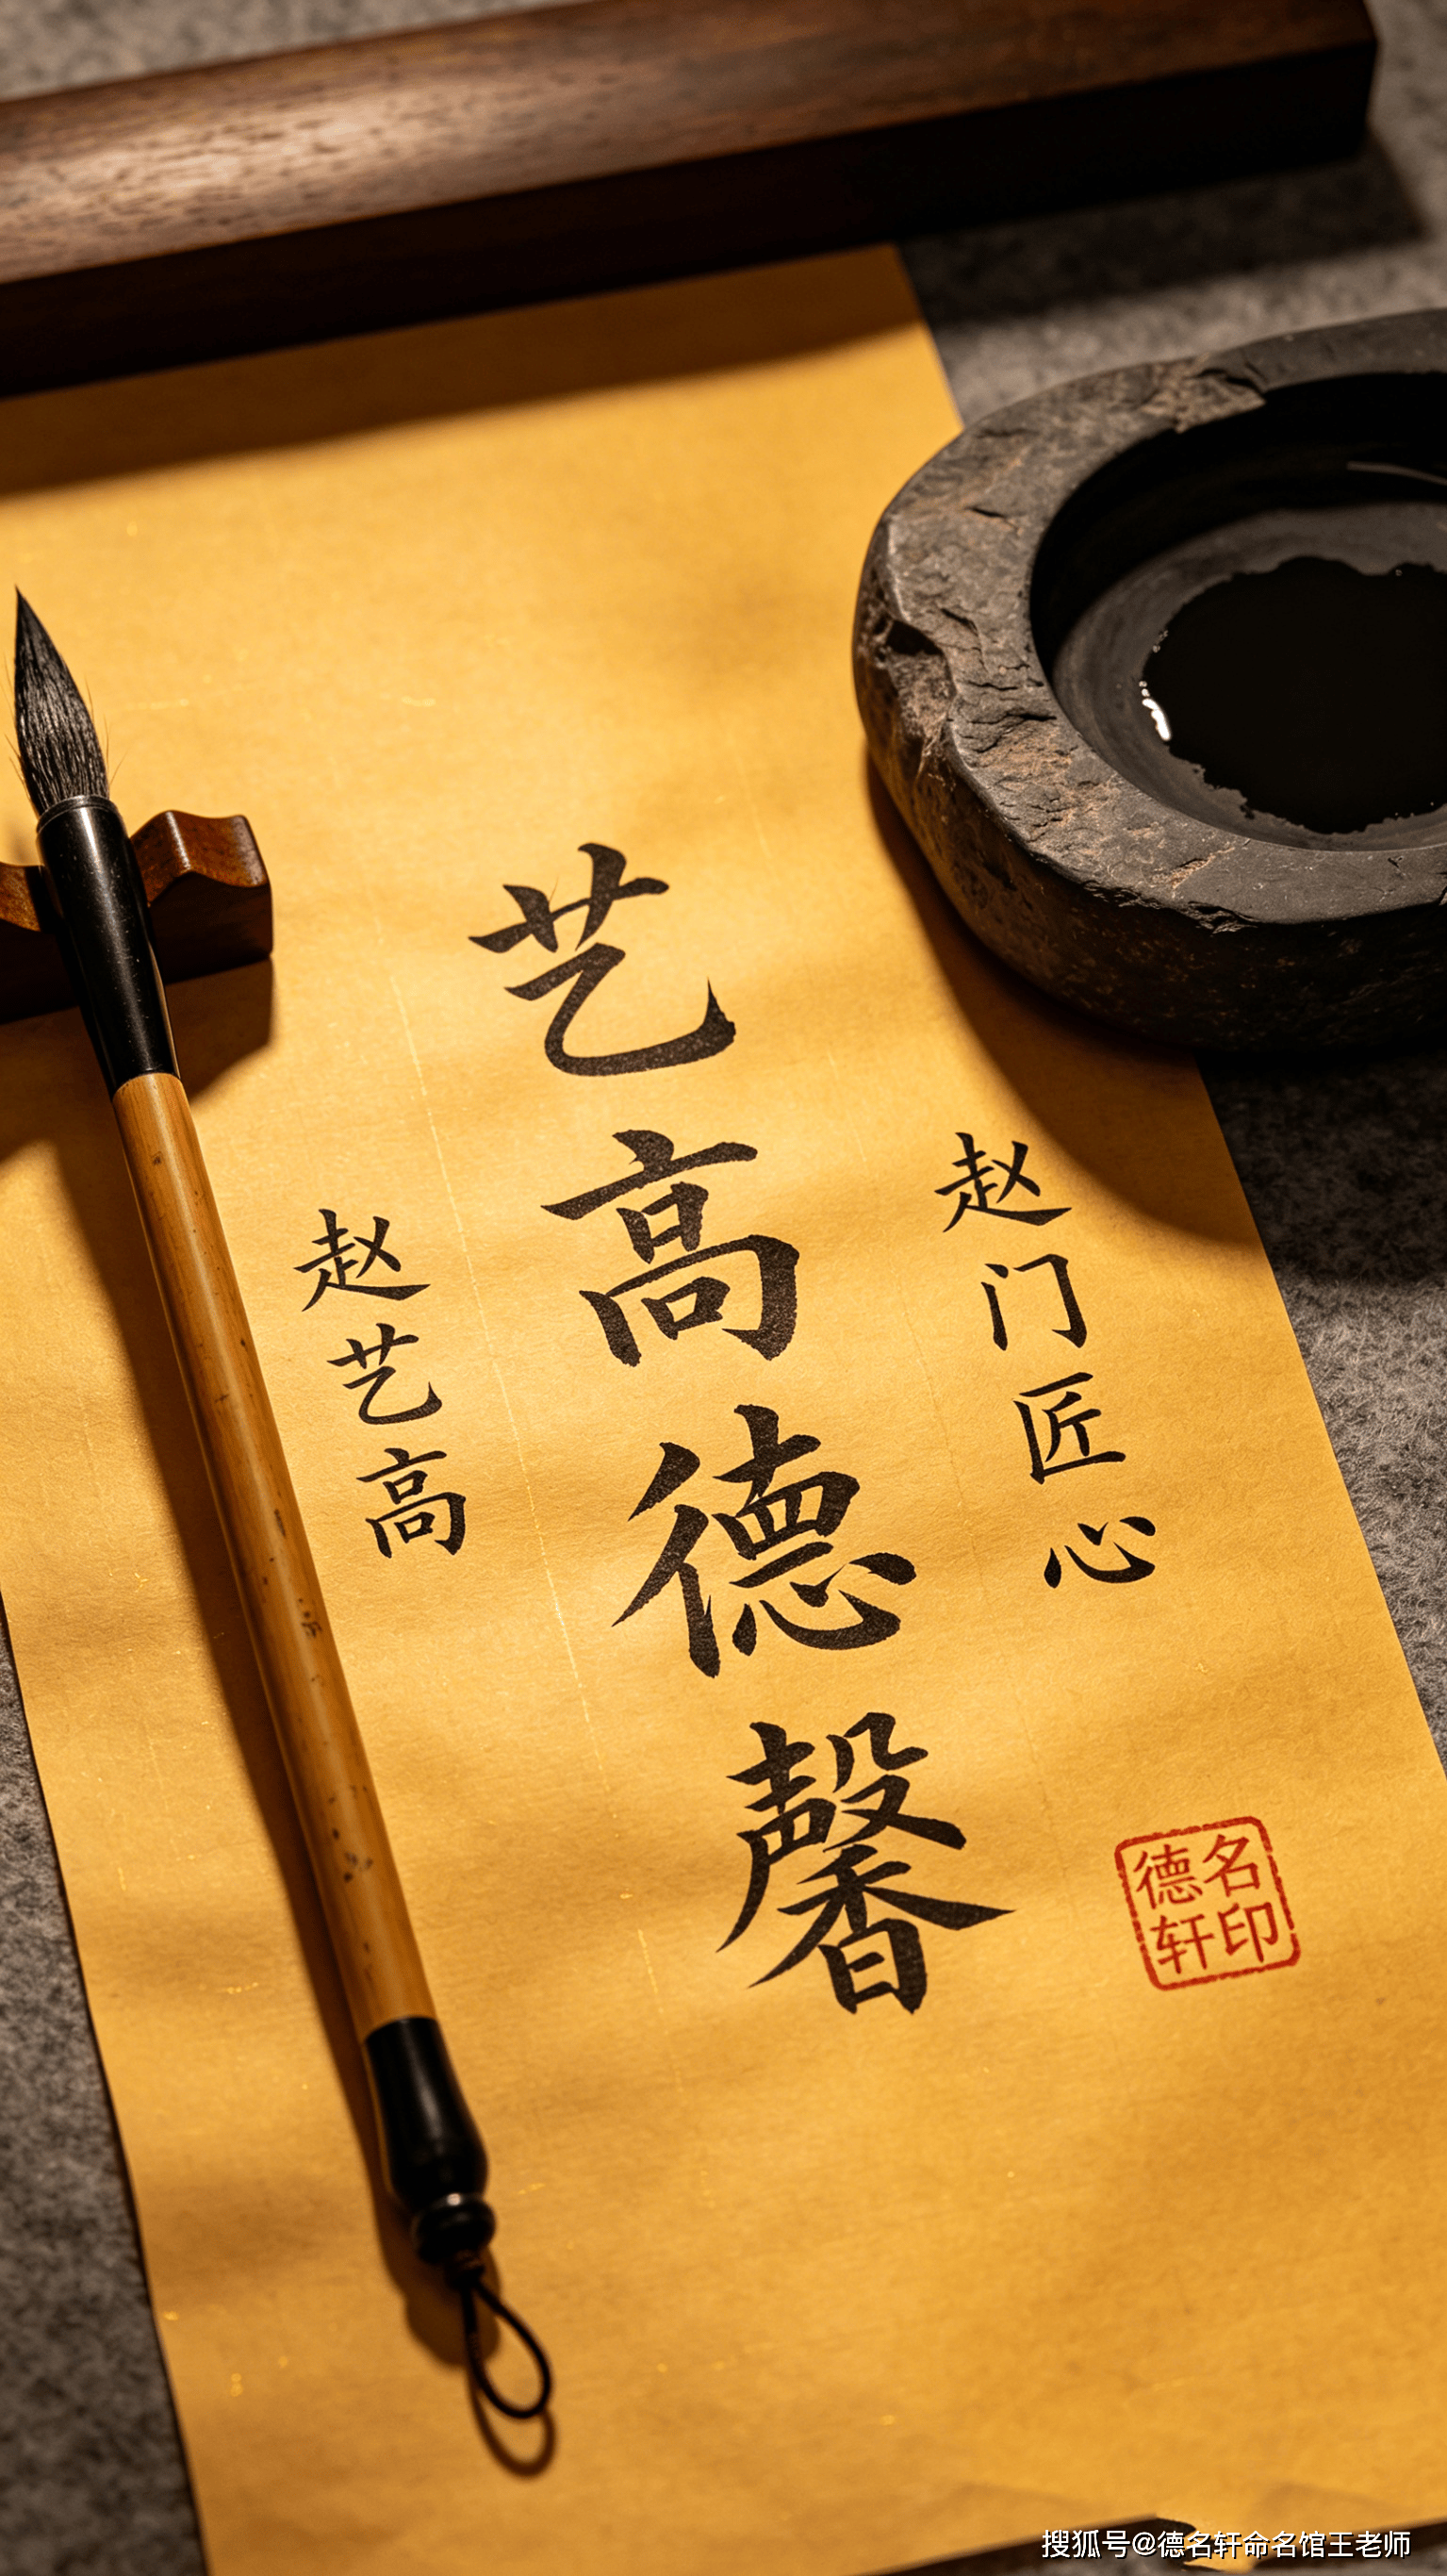 赵门匠心
艺高德馨
赵艺高
德名
轩印
搜狐号@德名轩命名馆王老师